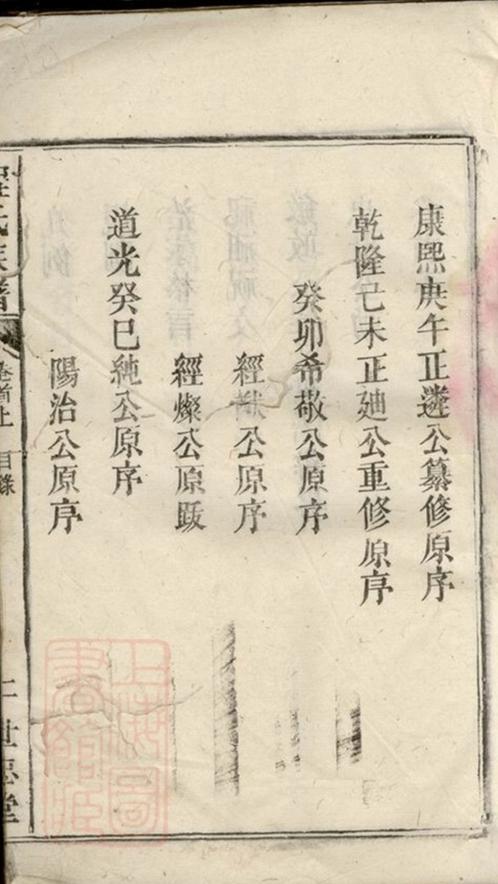 康熙庚午正遴公纂修原序
乾隆己未正廸公重修原序
癸卯希敬公原序
經公原序
經燦公原跋
道光癸巳純公原序
陽治公原序
氏族譜
卷首上 目錄
世忠堂